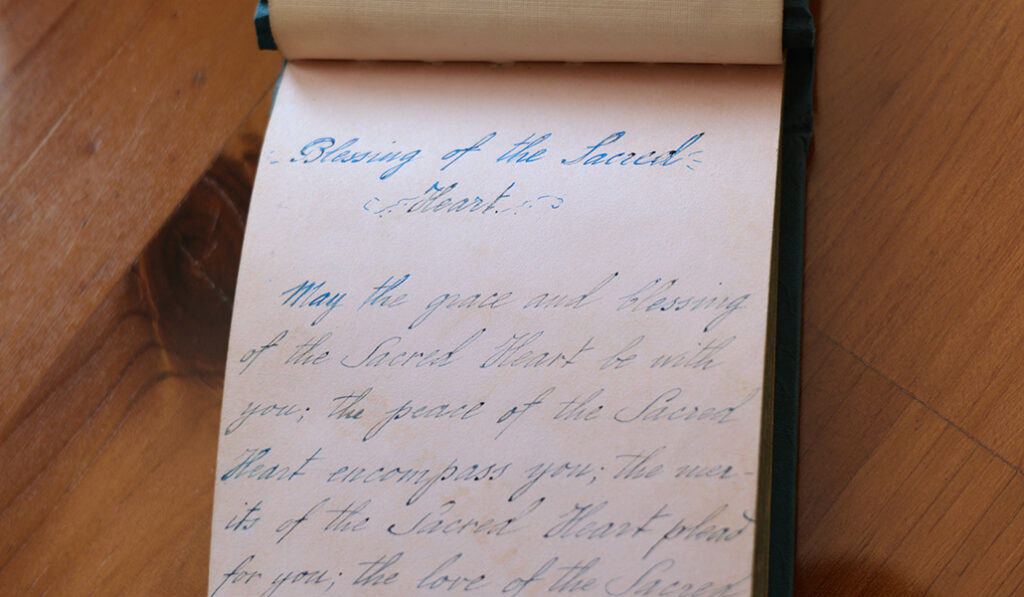 Blessing of the Sacred
Heart.
May the grace and blessing
of the Sacred Heart be with
you; the peace of the Sacred
Heart encompass you; the mer-
its of the Sacred Heart plead
for you; the love of the Sacred